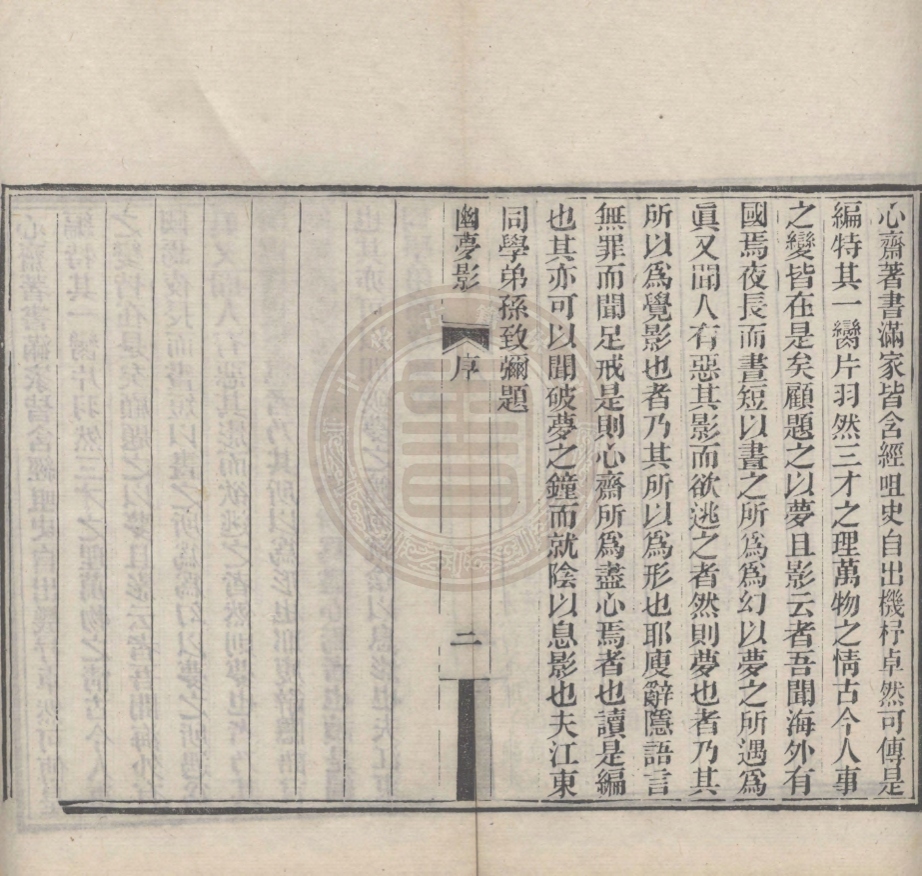 心齋著書滿家皆含經咀史自出機杼卓然可傳是
編特其一臠片羽然三才之理萬物之情古今人事
之變皆在是矣顧題之以夢且影云者吾聞海外有
國焉夜長而晝短以晝之所爲爲幻以夢之所遇爲
眞又聞人有惡其影而欲逃之者然則夢也者乃其
所以爲覺影也者乃其所以爲形也耶廋辭隱語言
無罪而聞足戒是則心齋所爲盡心焉者也讀是編
也其亦可以聞破夢之鐘而就陰以息影也夫江東
同學弟孫致彌題
幽夢影
序
二